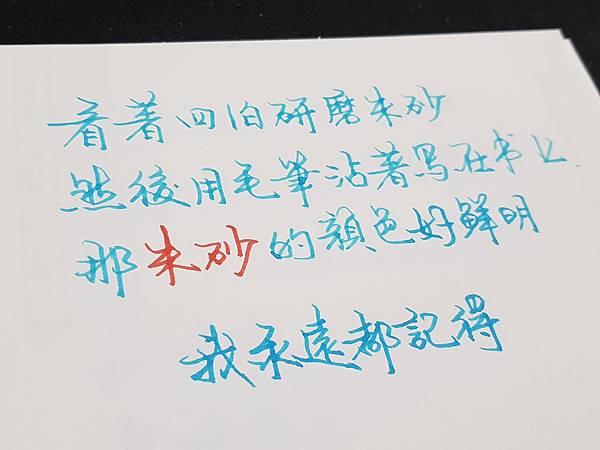 看著四伯研磨朱砂
然後用毛筆沾著寫在书上
那朱砂的顏色好鮮明
我永遠都記得